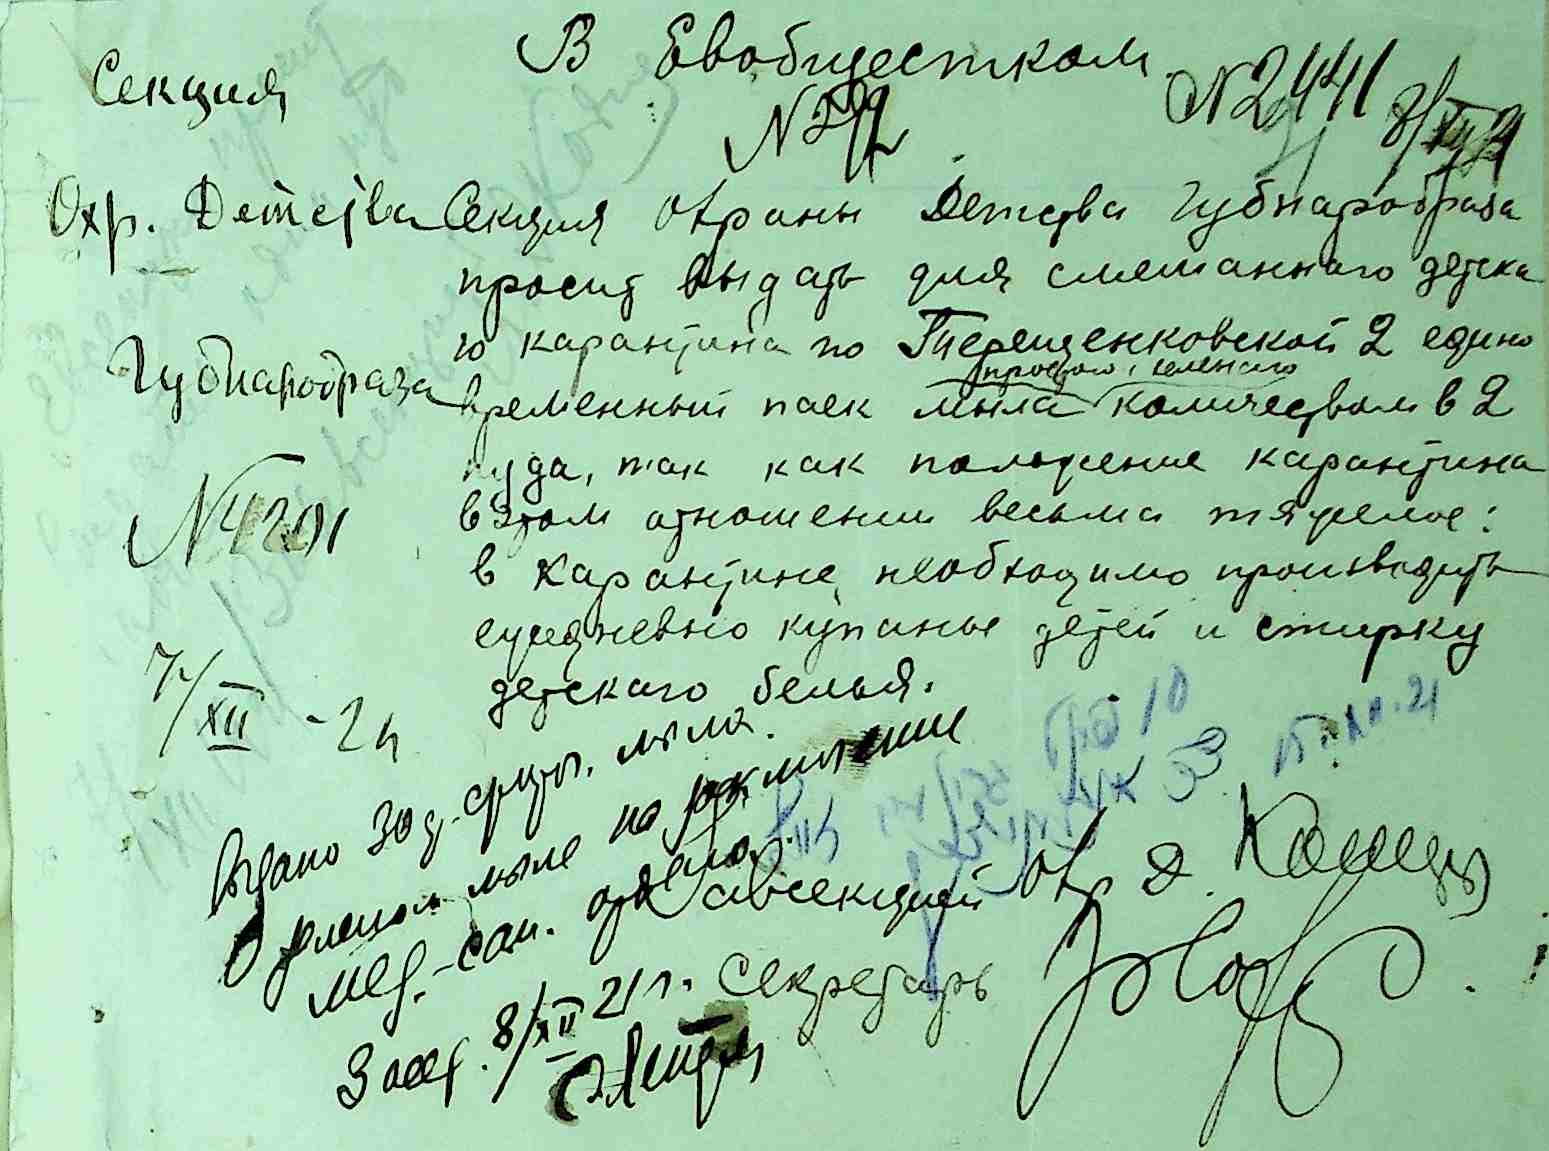 В Евобщестком
№ 2441 8/XII 21
Секция
Охр. Детства
Губнаробраза
№ 4201
7/XII - 21
Секция охраны Детства Губнаробраза
просит выдать для смешанного детска
го карантина по Терещенковской 2 едино
простого, зеленаго
временный паек мыла количеством в 2
пуда, так как положение карантина
в этом отношении весьма тяжелое:
в карантине необходимо производить
ежедневно купанье детей и стирку
детского белья.
Выдано 30 д. фунт. мыла.
О зеленом мыле на заключение
мед.-сан. отдела.
Завсекцией Охр. Д.
Секретарь
8/XII 21 г.